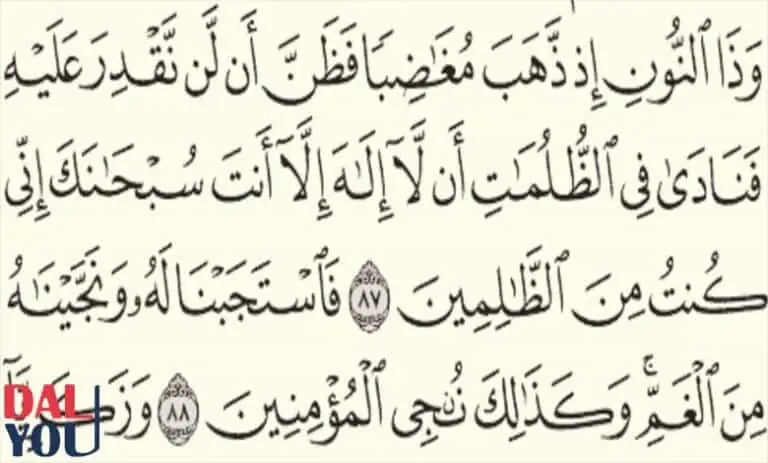 وَذَا ٱلنُّونِ إِذ ذَّهَبَ مُغَٰضِبٗا فَظَنَّ أَن لَّن نَّقۡدِرَ عَلَيۡهِ
فَنَادَىٰ فِي ٱلظُّلُمَٰتِ أَن لَّآ إِلَٰهَ إِلَّآ أَنتَ سُبۡحَٰنَكَ إِنِّي
كُنتُ مِنَ ٱلظَّٰلِمِينَ ٨٧ فَٱسۡتَجَبۡنَا لَهُۥ وَنَجَّيۡنَٰهُ
مِنَ ٱلۡغَمِّۚ وَكَذَٰلِكَ نُـۨجِي ٱلۡمُؤۡمِنِينَ ٨٨ وَزَكَرِيَّآ
DAL
YOU